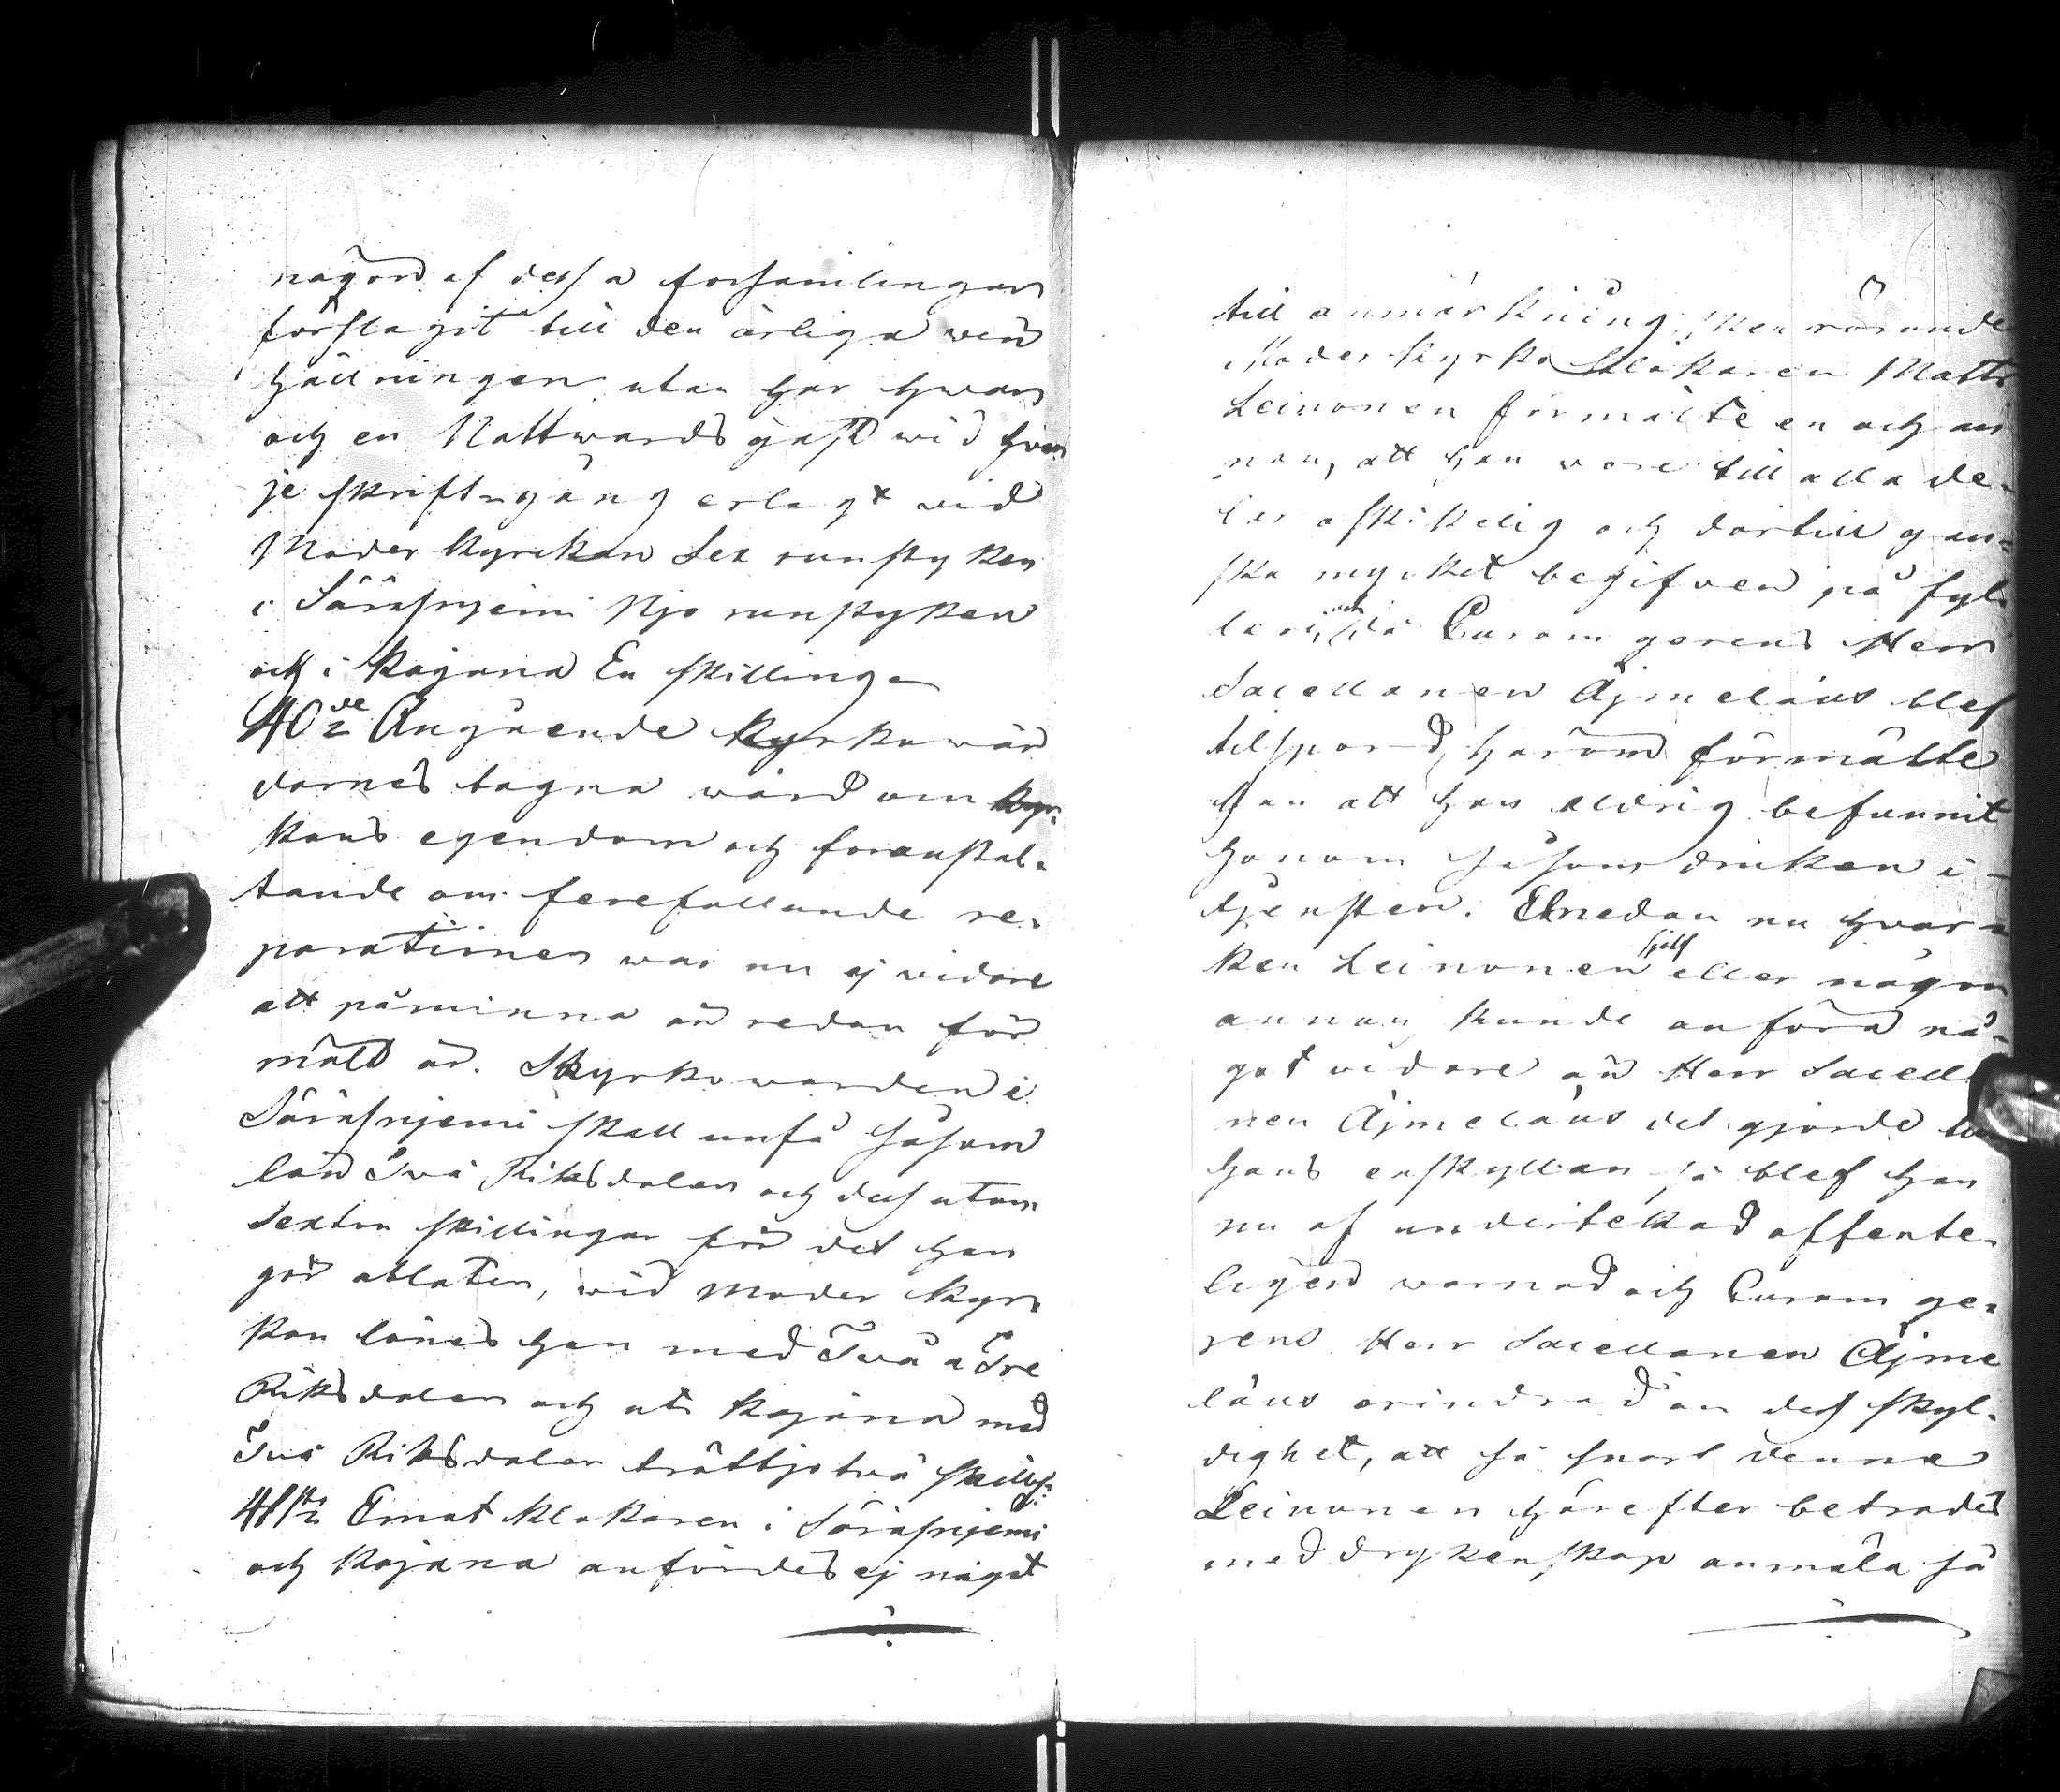 någon af dessa forsamlingar
förslagit till den årliga vin
hållningen utan har hwar
och en Nattwards gäst wid hvar
je skriftegång erlagt vid
Moder kyrckan Sex runstyken
i Säräsnjemi Njo runstyken
och i Kajana En skilling
40de Angående Kyrkowär
darnes tagna wård om kyr-
kans egendom och foranstal-
tande om forefallande re-
parationer war nu ej vidare
att påminna än redan för
mält är. Kyrkowarden i
Säräsnjemi skall unfå såsom
lön Två Riksdaler och dessutom
Sexton skillingar för det han
gör ablaten, wid moder kyr
kan lönes han med Två a Tre
Riksdaler och uti Kajana med
Två Riksdaler trättjotvå skillg:
41sta Emot klokaren i Säräsnjemi
och Kajana anfördes ej något
till anmärkning, Men rörande
Moder kyrko klåkaren Matts
Leinonen förmälte en och an
nan, att han vore till alla de-
lar oskikelig och därtill gan-
ska mycket begifven på fyl-
leri, och då Curam gerens Herr
Sacellanen Äjmeläus blef
tilspord härom förmälte
han att han aldrig befunnit
honom såsom druken i
tjensten. Emedan nu hvar-
ken Leinonen sjelf eller någon
annan kunde anföra nå-
got vidare än Herr Sacella
nen Äjmeläus det gjorde till
hans enskyllan så blef han
nu af undertekad offente-
ligen warnad och Curam ge-
rens Herr Sacellanen Äjme
läus erindrad om dess skyl-
dighet, att så snart denne
Leinonen härefter betrades
med dryckenskap anmäla så